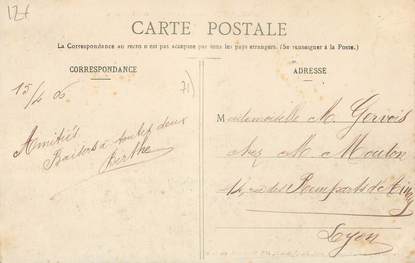 CARTE POSTALE
La Correspondance au recto n'est pas acceptée par tous les pays étrangers. (Se renseigner à la Poste.)
CORRESPONDANCE
ADRESSE
15/4 06
71)
Amitiés
Baisers à toutes deux
Berthe
Mademoiselle M. Gervais
chez M. Mouton
12, rue des Remparts d'Ainay
Lyon